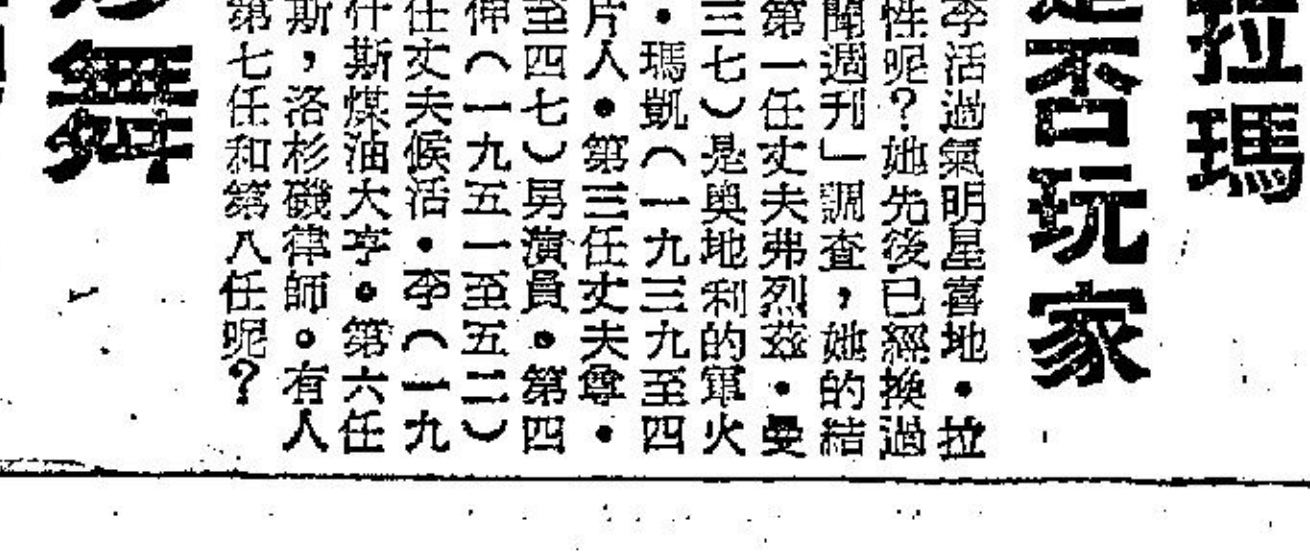 拉瑪
是否玩家
李活過氣明星喜地·拉
性呢?她先後已經換過
聞週刊」調查,她的結
第一任丈夫弗烈茲·曼
三七)是奧地利的軍火
·瑪凱(一九三九至四
片人。第三任丈夫尊·
至四七)男演員。第四
伸(一九五一至五二)
任丈夫候活·李(一九
什斯煤油大亨。第六任
斯,洛杉磯律師。有人
第七任和第八任呢?
舞